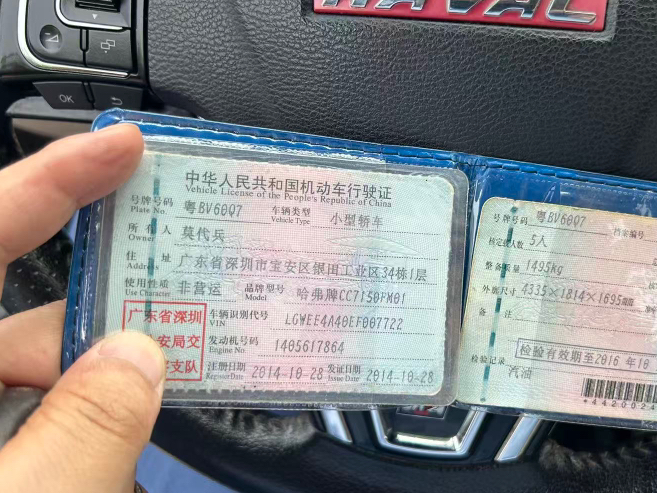 HAVAL
OK
中华人民共和国机动车行驶证
Vehicle License of the People's Republic of China
号牌号码 Plate No. 粤BV60Q7 车辆类型 Vehicle Type 小型轿车
所有人 Owner 莫代兵
住址 Address 广东省深圳市宝安区银田工业区34栋1层
使用性质 Use Character 非营运 品牌型号 Model 哈弗牌CC7150FM01
车辆识别代号 VIN LGWEE4A40EF007722
发动机号码 Engine No. 1405617864
注册日期 Register Date 2014-10-28 发证日期 Issue Date 2014-10-28
广东省深圳
安局交
支队
号牌号码 粤BV60Q7 档案编号
核定载人数 5人
整备质量 1495kg
外廓尺寸 4335×1814×1695mm
备注
检验有效期至2016年10
检验记录
汽油